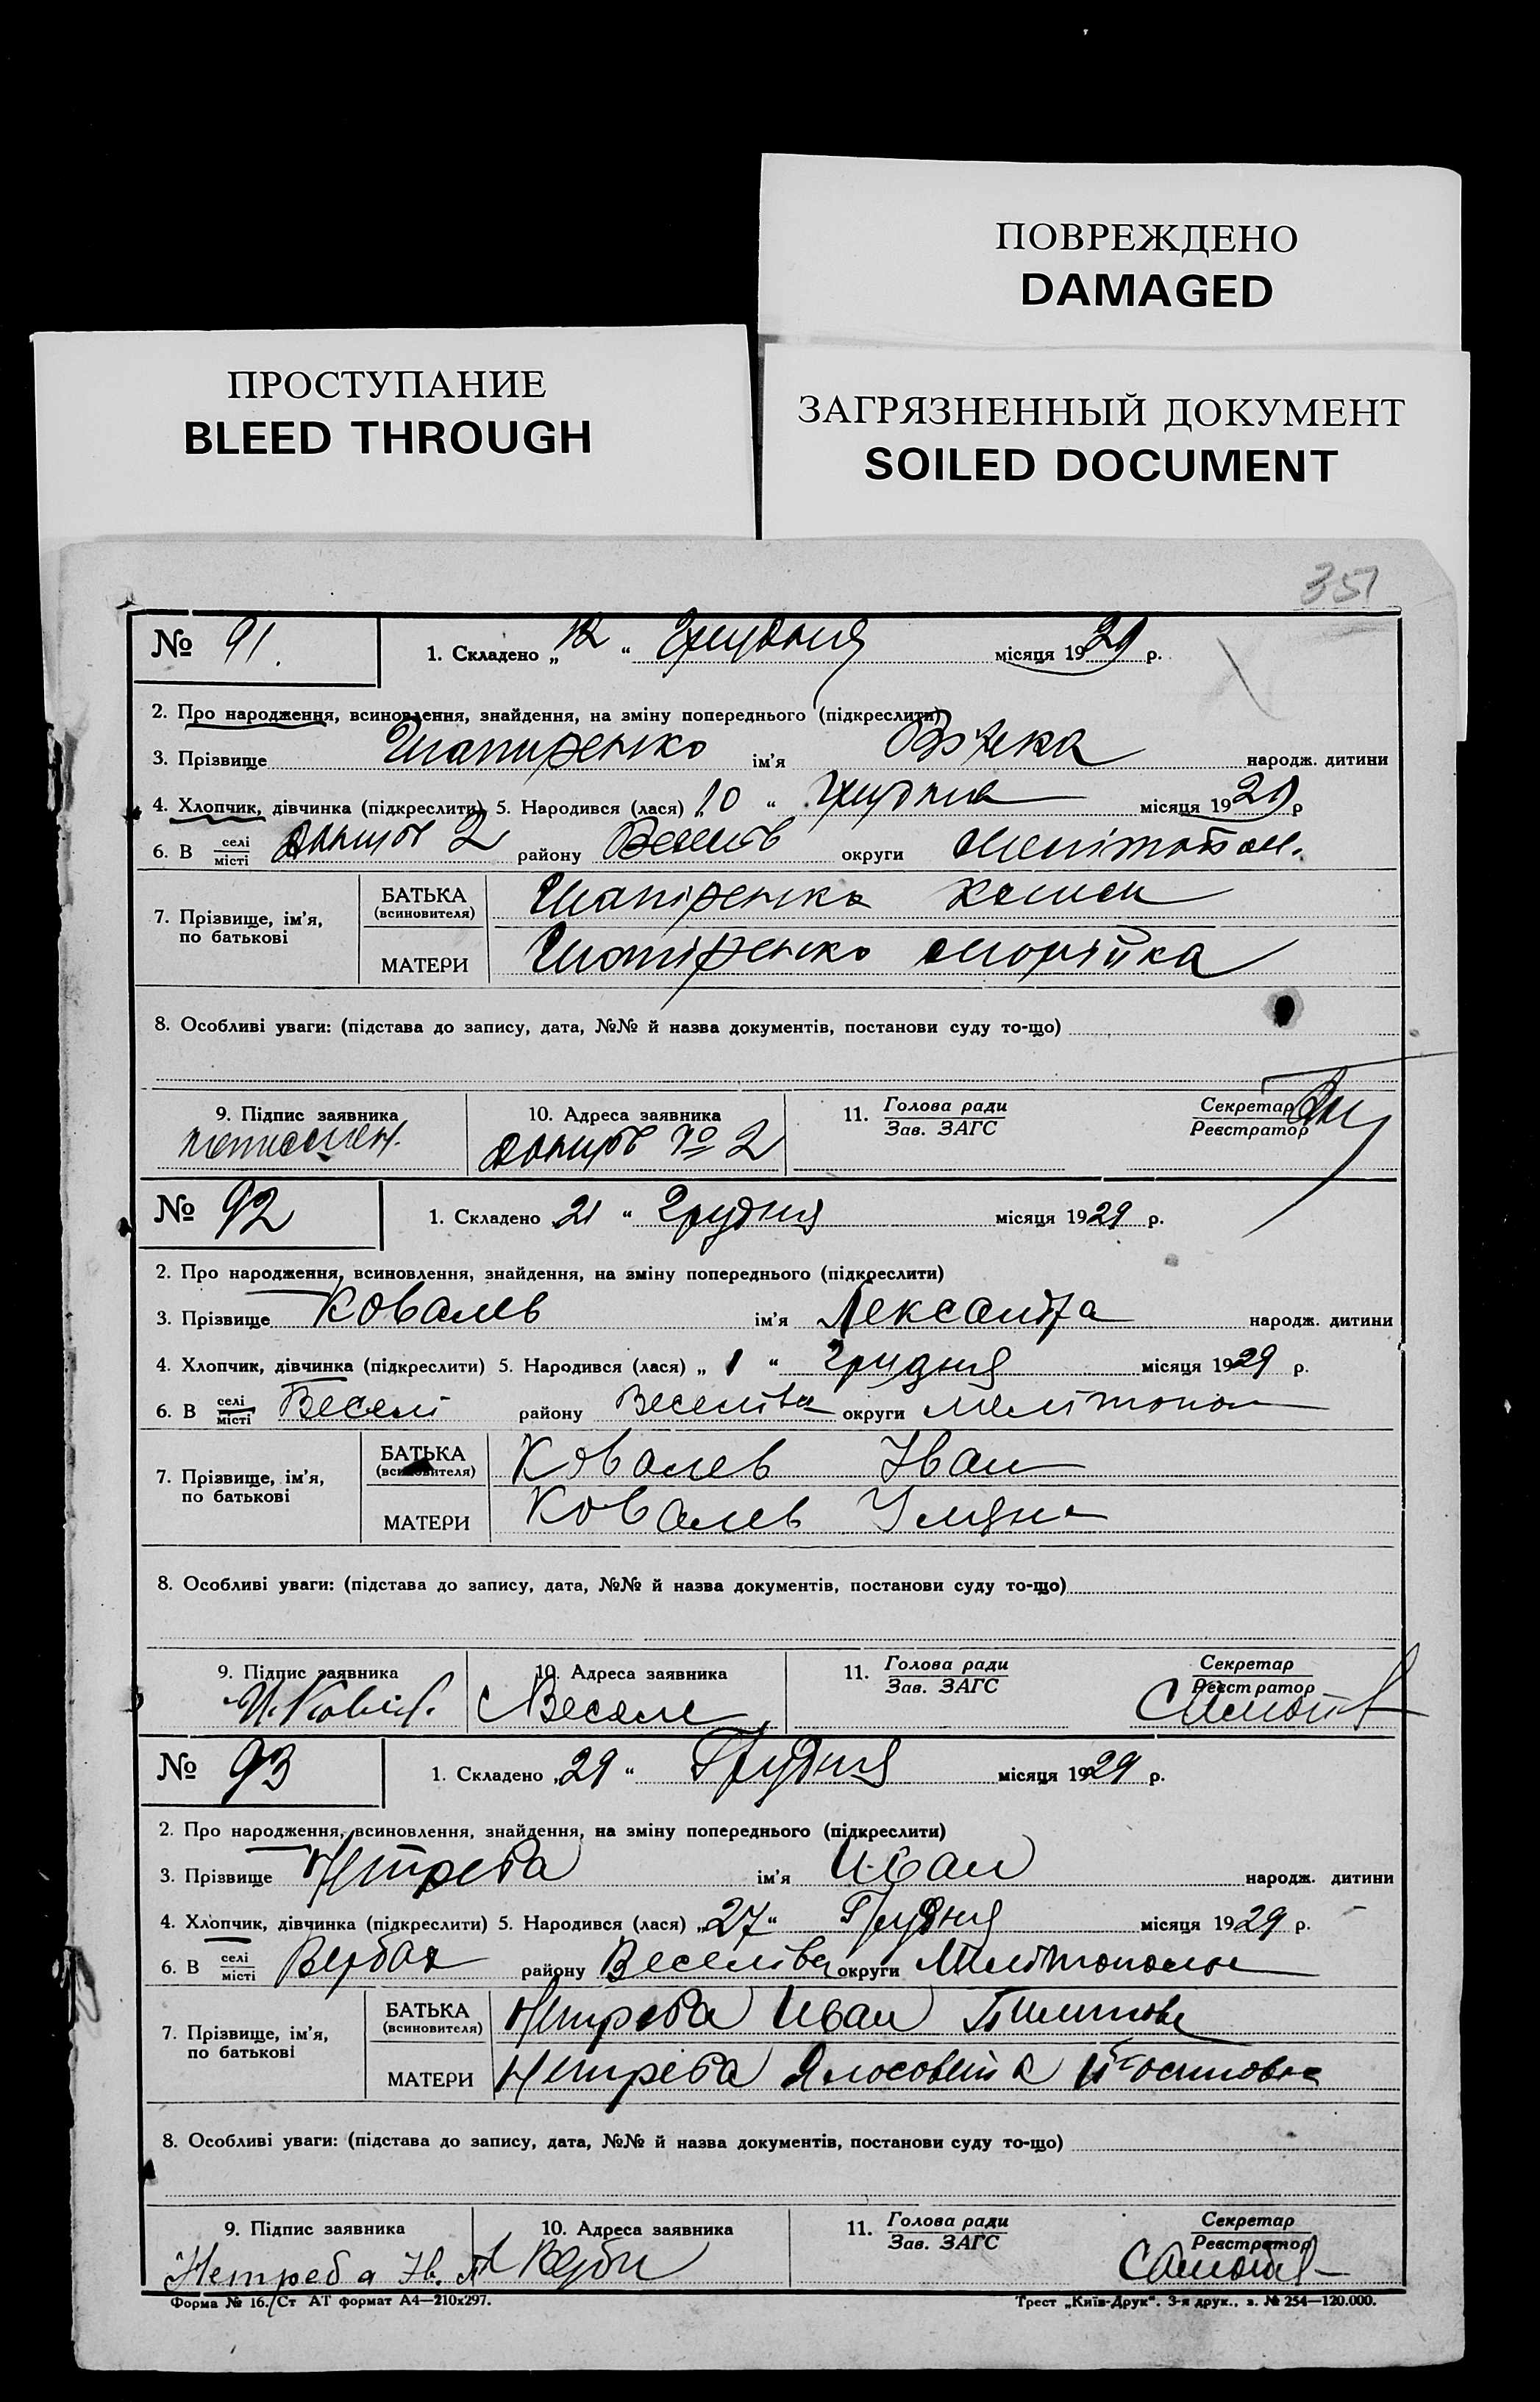 ПОВРЕЖДЕНО
DAMAGED
ПРОСТУПАНИЕ
BLEED THROUGH
ЗАГРЯЗНЕННЫЙ ДОКУМЕНТ
SOILED DOCUMENT
351
№ 91. 1. Складено „12“ Грудня місяця 1929 р.
2. Про народження, всиновлення, знайдення, на зміну попереднього (підкреслити)
3. Прізвище Шапиренко ім'я народж. дитини
4. Хлопчик, дівчинка (підкреслити) 5. Народився (лася) „10“ Грудня місяця 1929 р
6. В селі місті 2 району Веселів округи Мелітопол.
7. Прізвище, ім'я, по батькові
БАТЬКА (всиновителя) Шапіренко
МАТЕРИ Шапіренко
8. Особливі уваги: (підстава до запису, дата, №№ й назва документів, постанови суду то-що)
9. Підпис заявника 10. Адреса заявника 11. Голова ради Зав. ЗАГС Секретар Реєстратор
№ 2
№ 92 1. Складено „21“ Грудня місяця 1929 р.
2. Про народження, всиновлення, знайдення, на зміну попереднього (підкреслити)
3. Прізвище Ковалев ім'я Лександра народж. дитини
4. Хлопчик, дівчинка (підкреслити) 5. Народився (лася) „1“ Грудня місяця 1929 р.
6. В селі місті Веселі району Веселівка округи Мелітопол
7. Прізвище, ім'я, по батькові
БАТЬКА (всиновителя) Ковалев Іван
МАТЕРИ Ковалев Уляна
8. Особливі уваги: (підстава до запису, дата, №№ й назва документів, постанови суду то-що)
9. Підпис заявника 10. Адреса заявника 11. Голова ради Зав. ЗАГС Секретар Реєстратор
С Веселе
№ 93 1. Складено „29“ Грудня місяця 1929 р.
2. Про народження, всиновлення, знайдення, на зміну попереднього (підкреслити)
3. Прізвище Нетреба ім'я Иван народж. дитини
4. Хлопчик, дівчинка (підкреслити) 5. Народився (лася) „27“ Грудня місяця 1929 р.
6. В селі місті Вербах району Веселівка округи Мелітополь
7. Прізвище, ім'я, по батькові
БАТЬКА (всиновителя) Нетреба Иван
МАТЕРИ Нетреба
8. Особливі уваги: (підстава до запису, дата, №№ й назва документів, постанови суду то-що)
9. Підпис заявника 10. Адреса заявника 11. Голова ради Зав. ЗАГС Секретар Реєстратор
Нетреба Ів.
Форма № 16. Ст АТ формат А4—210x297. Трест „Київ-Друк“. 3-я друк., з. № 254—120.000.